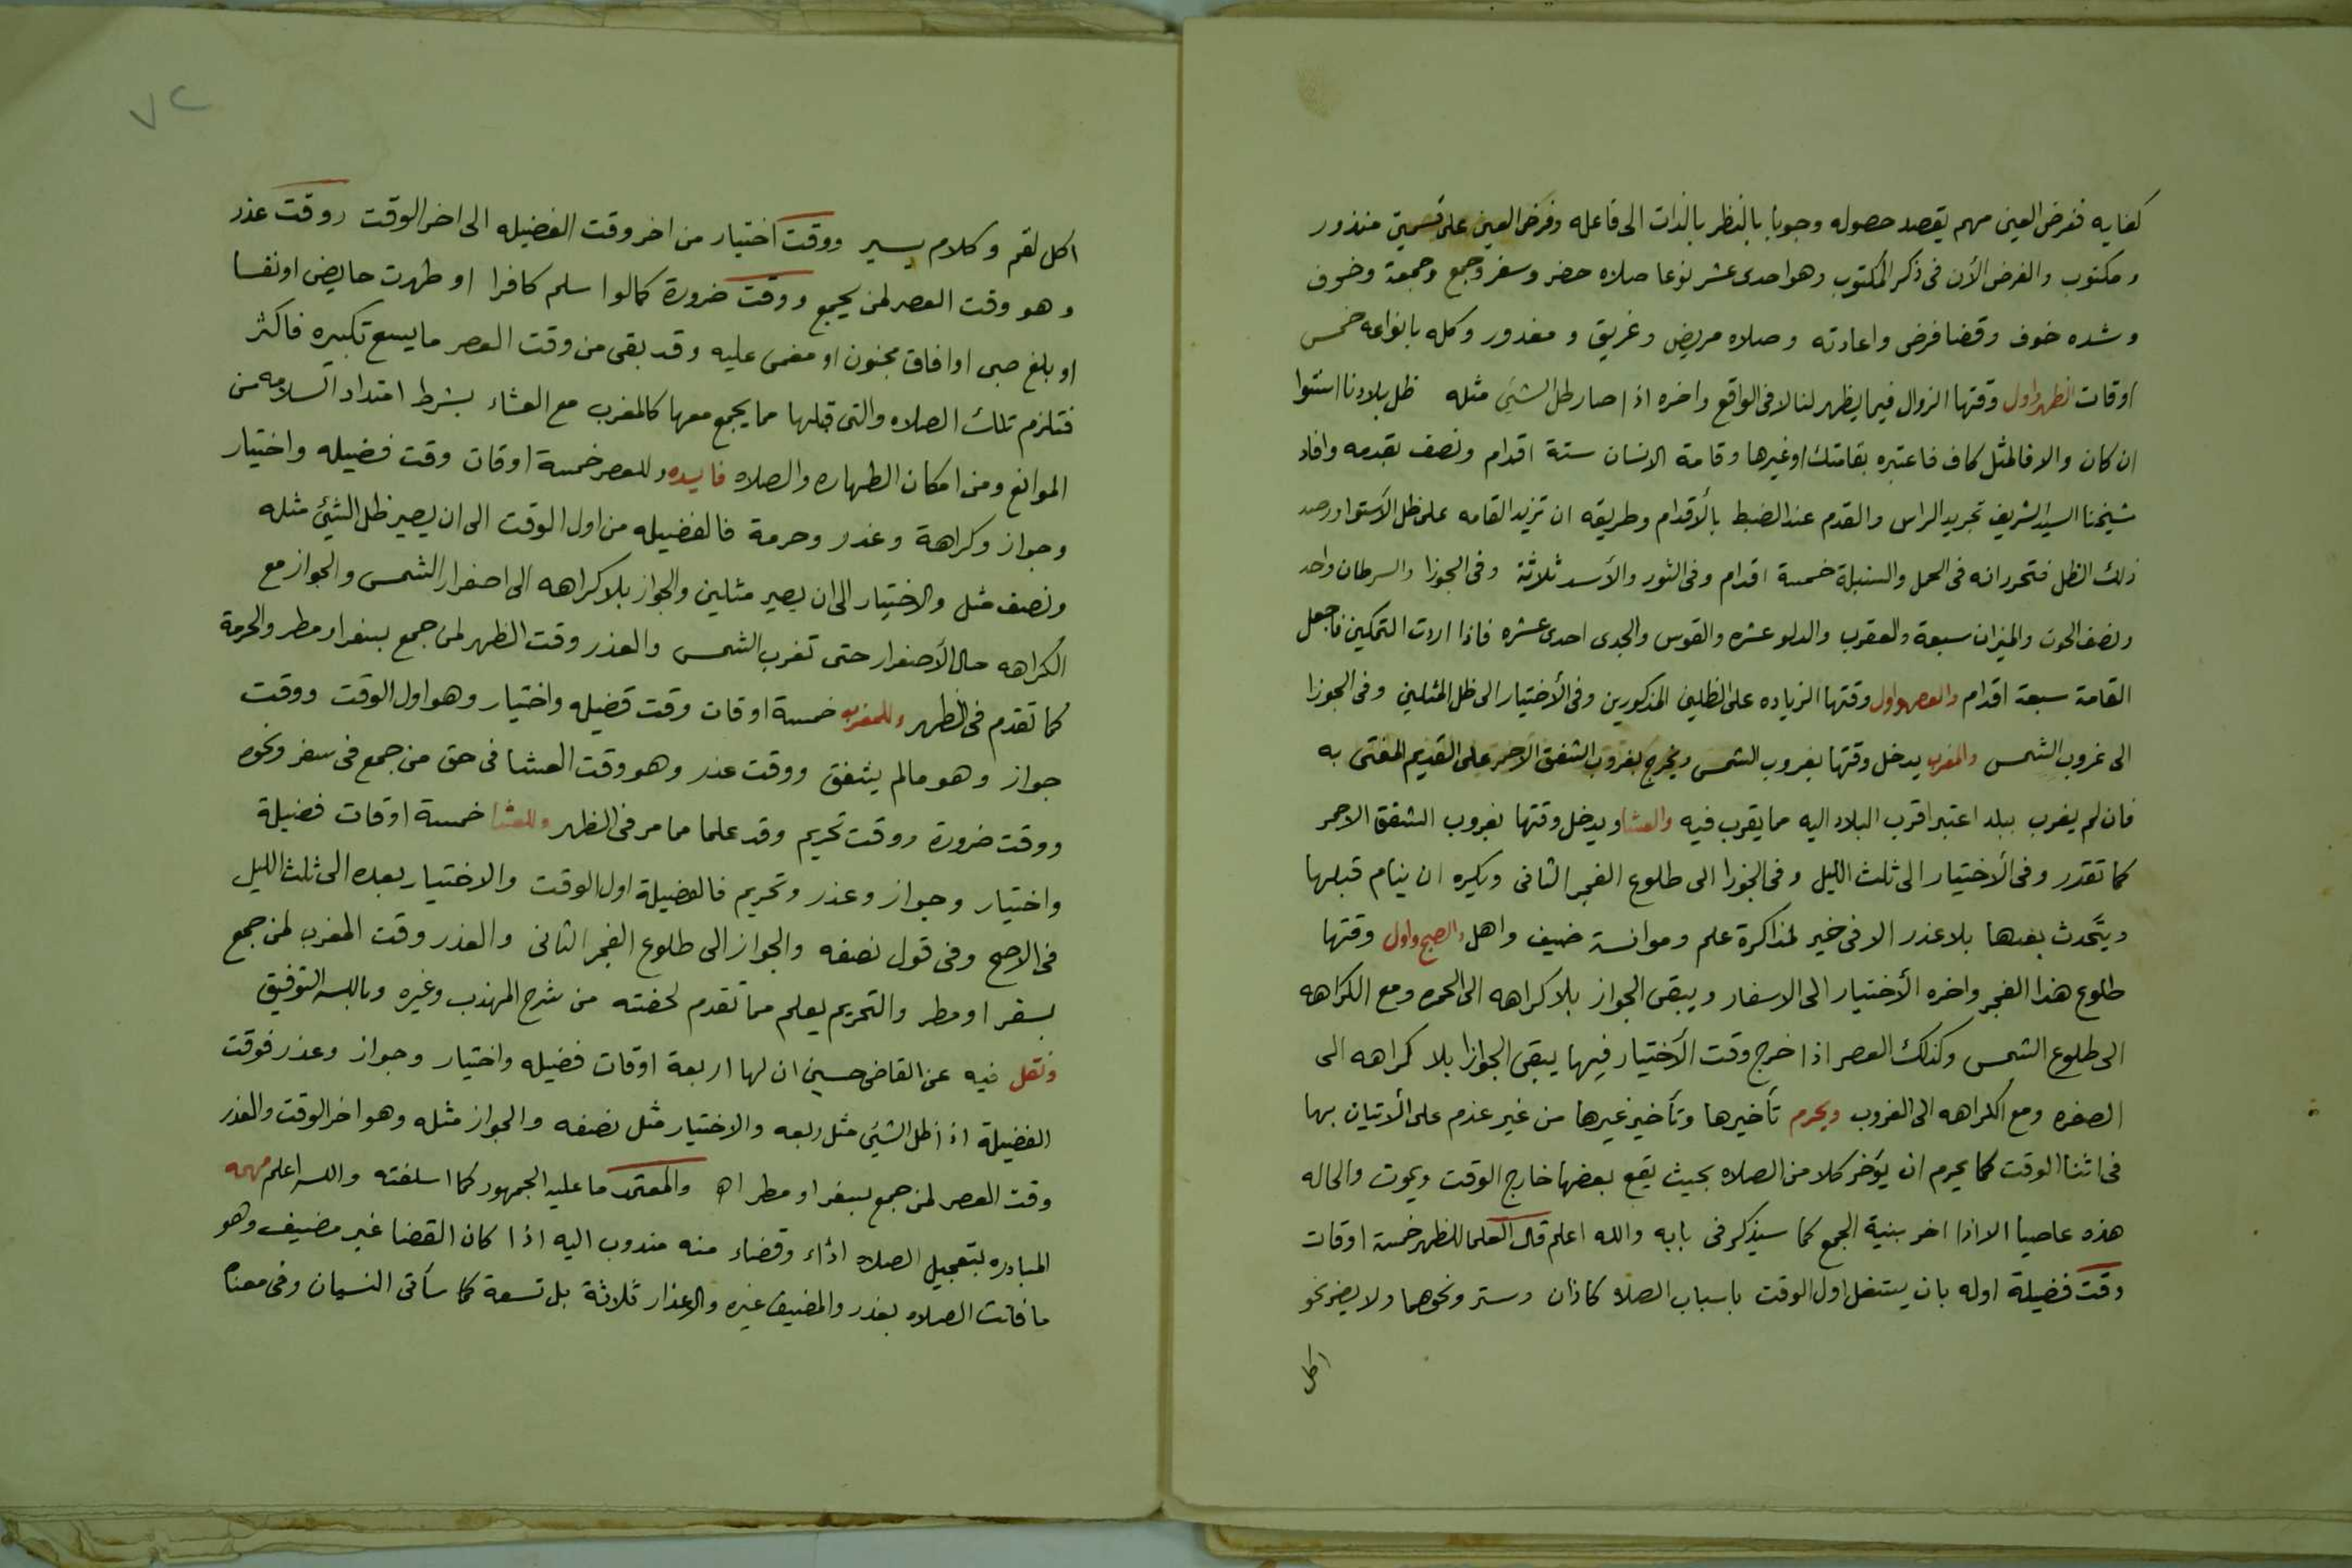 كفايه ففرض العين مهم يقصد حصوله وجوبا بالنظر بالذات الى فاعله وفرض العين على قسمين منذور
ومكتوب والغرض الآن في ذكر المكتوب وهو احدى عشر نوعا صلاه حضر وسفر وجمع وجمعة وخوف
وشده خوف وقضا فرض واعادته وصلاه مريض وغريق ومعذور وكله بانواعه خمس
اوقات الظهر واول وقتها الزوال فيما يظهر لنا لا في الواقع واخره اذا صار ظل الشئ مثله ظل بلادنا استوا
ان كان والا فالمثل كاف فاعتبره بقامتك او غيرها وقامة الانسان ستة اقدام ونصف بقدمه وافاد
شيخنا السيد الشريف تجريد الراس والقدم عند الضبط بالأقدام وطريقه ان تزيد القامه على ظل الأستوا ورصد
ذلك الظل فتحرر انه في الحمل والسنبلة خمسة اقدام وفي الثور والأسد ثلاثة وفي الجوزا والسرطان واحد
ونصف الحوت والميزان سبعة والعقرب والدلو عشره والقوس والجدى احدى عشره فاذا اردت التمكين فاجعل
القامة سبعة اقدام والعصر واول وقتها الزياده على الظلين المذكورين وفي الأختيار الى ظل المثلين وفي الجوزا
الى غروب الشمس والمغرب يدخل وقتها بغروب الشمس ويخرج بغروب الشفق الاحمر على القديم المفتى به
فان لم يغرب ببلد اعتبر اقرب البلاد اليه مما يقرب فيه والعشا ويدخل وقتها بغروب الشفق الاحمر
كما تقدر وفي الأختيار الى ثلث الليل وفي الجوزا الى طلوع الفجر الثانى ويكره ان ينام قبلها
ويتحدث بعدها بلا عذر الا في خير لمذاكرة علم وموانسة ضيف واهل والصبح واول وقتها
طلوع هذا الفجر واخره الأختيار الى الاسفار ويبقى الجواز بلا كراهه الى الحمره ومع الكراهه
الى طلوع الشمس وكذلك العصر اذا خرج وقت الأختيار فيها يبقى الجوازا بلا كراهه الى
الصفره ومع الكراهه الى الغروب ويحرم تأخيرها وتأخير غيرها من غير عذم على الأتيان بها
في اثنا الوقت كما يحرم ان يؤخر كلا من الصلاه بحيث يقع بعضها خارج الوقت ويموت والحاله
هذه عاصيا الا اذا اخر بنية الجمع كما سيذكر في بابه والله اعلم قال العلما للظهر خمسة اوقات
وقت فضيلة اوله بان يشتغل اول الوقت باسباب الصلاه كاذان وستر ونحوهما ولا يضر نحو
اكل
٧٢
اكل لقم وكلام يسير ووقت اختيار من اخر وقت الفضيله الى اخر الوقت ووقت عذر
وهو وقت العصر لمن يجمع ووقت ضرورة كما لوا سلم كافرا او طهرت حايض او نفسا
او بلغ صبى او افاق مجنون او مغمى عليه وقد بقى من وقت العصر ما يسع تكبيره فاكثر
فتلزم تلك الصلاه والتى قبلها مما يجمع معها كالمغرب مع العشاء بشرط امتداد السلامه من
الموانع ومن امكان الطهاره والصلاه فايده وللعصر خمسة اوقات وقت فضيله واختيار
وجواز وكراهة وعذر وحرمة فالفضيله من اول الوقت الى ان يصير ظل الشئ مثله
ونصف مثل والاختيار الى ان يصير مثلين والجواز بلا كراهه الى اصفرار الشمس والجواز مع
الكراهه حال الأصفرار حتى تغرب الشمس والعذر وقت الظهر لمن جمع بسفر او مطر والحرمة
كما تقدم في الظهر وللمغرب خمسة اوقات وقت فضيله واختيار وهو اول الوقت ووقت
جواز وهو مالم يشفق ووقت عذر وهو وقت العشا في حق من جمع في سفر ونحوه
ووقت ضرورة ووقت تحريم وقد علما مما مر في الظهر وللعشا خمسة اوقات فضيلة
واختيار وجواز وعذر وتحريم فالفضيلة اول الوقت والاختيار بعده الى ثلث الليل
في الاصح وفي قول نصفه والجواز الى طلوع الفجر الثانى والعذر وقت المغرب لمن جمع
بسفر او مطر والتحريم يعلم مما تقدم لخصته من شرح المهذب وغيره وبالله التوفيق
ونقل فيه عن القاضى حسين ان لها اربعة اوقات فضيله واختيار وجواز وعذر فوقت
الفضيلة اذا ظل الشئ مثل ربعه والاختيار مثل نصفه والجواز مثله وهو اخر الوقت والعذر
وقت العصر لمن جمع بسفر او مطر اه والمعتمد ما عليه الجمهور كما اسلفته والله اعلم مهمه
المبادره بتعجيل الصلاه اداء وقضاء منه مندوب اليه اذا كان القضا غير مضيف وهو
ما فاتت الصلاه بعذر والمضيف غيره والاعذار ثلاثة بل تسعة كما سأتى النسيان وفي معناه